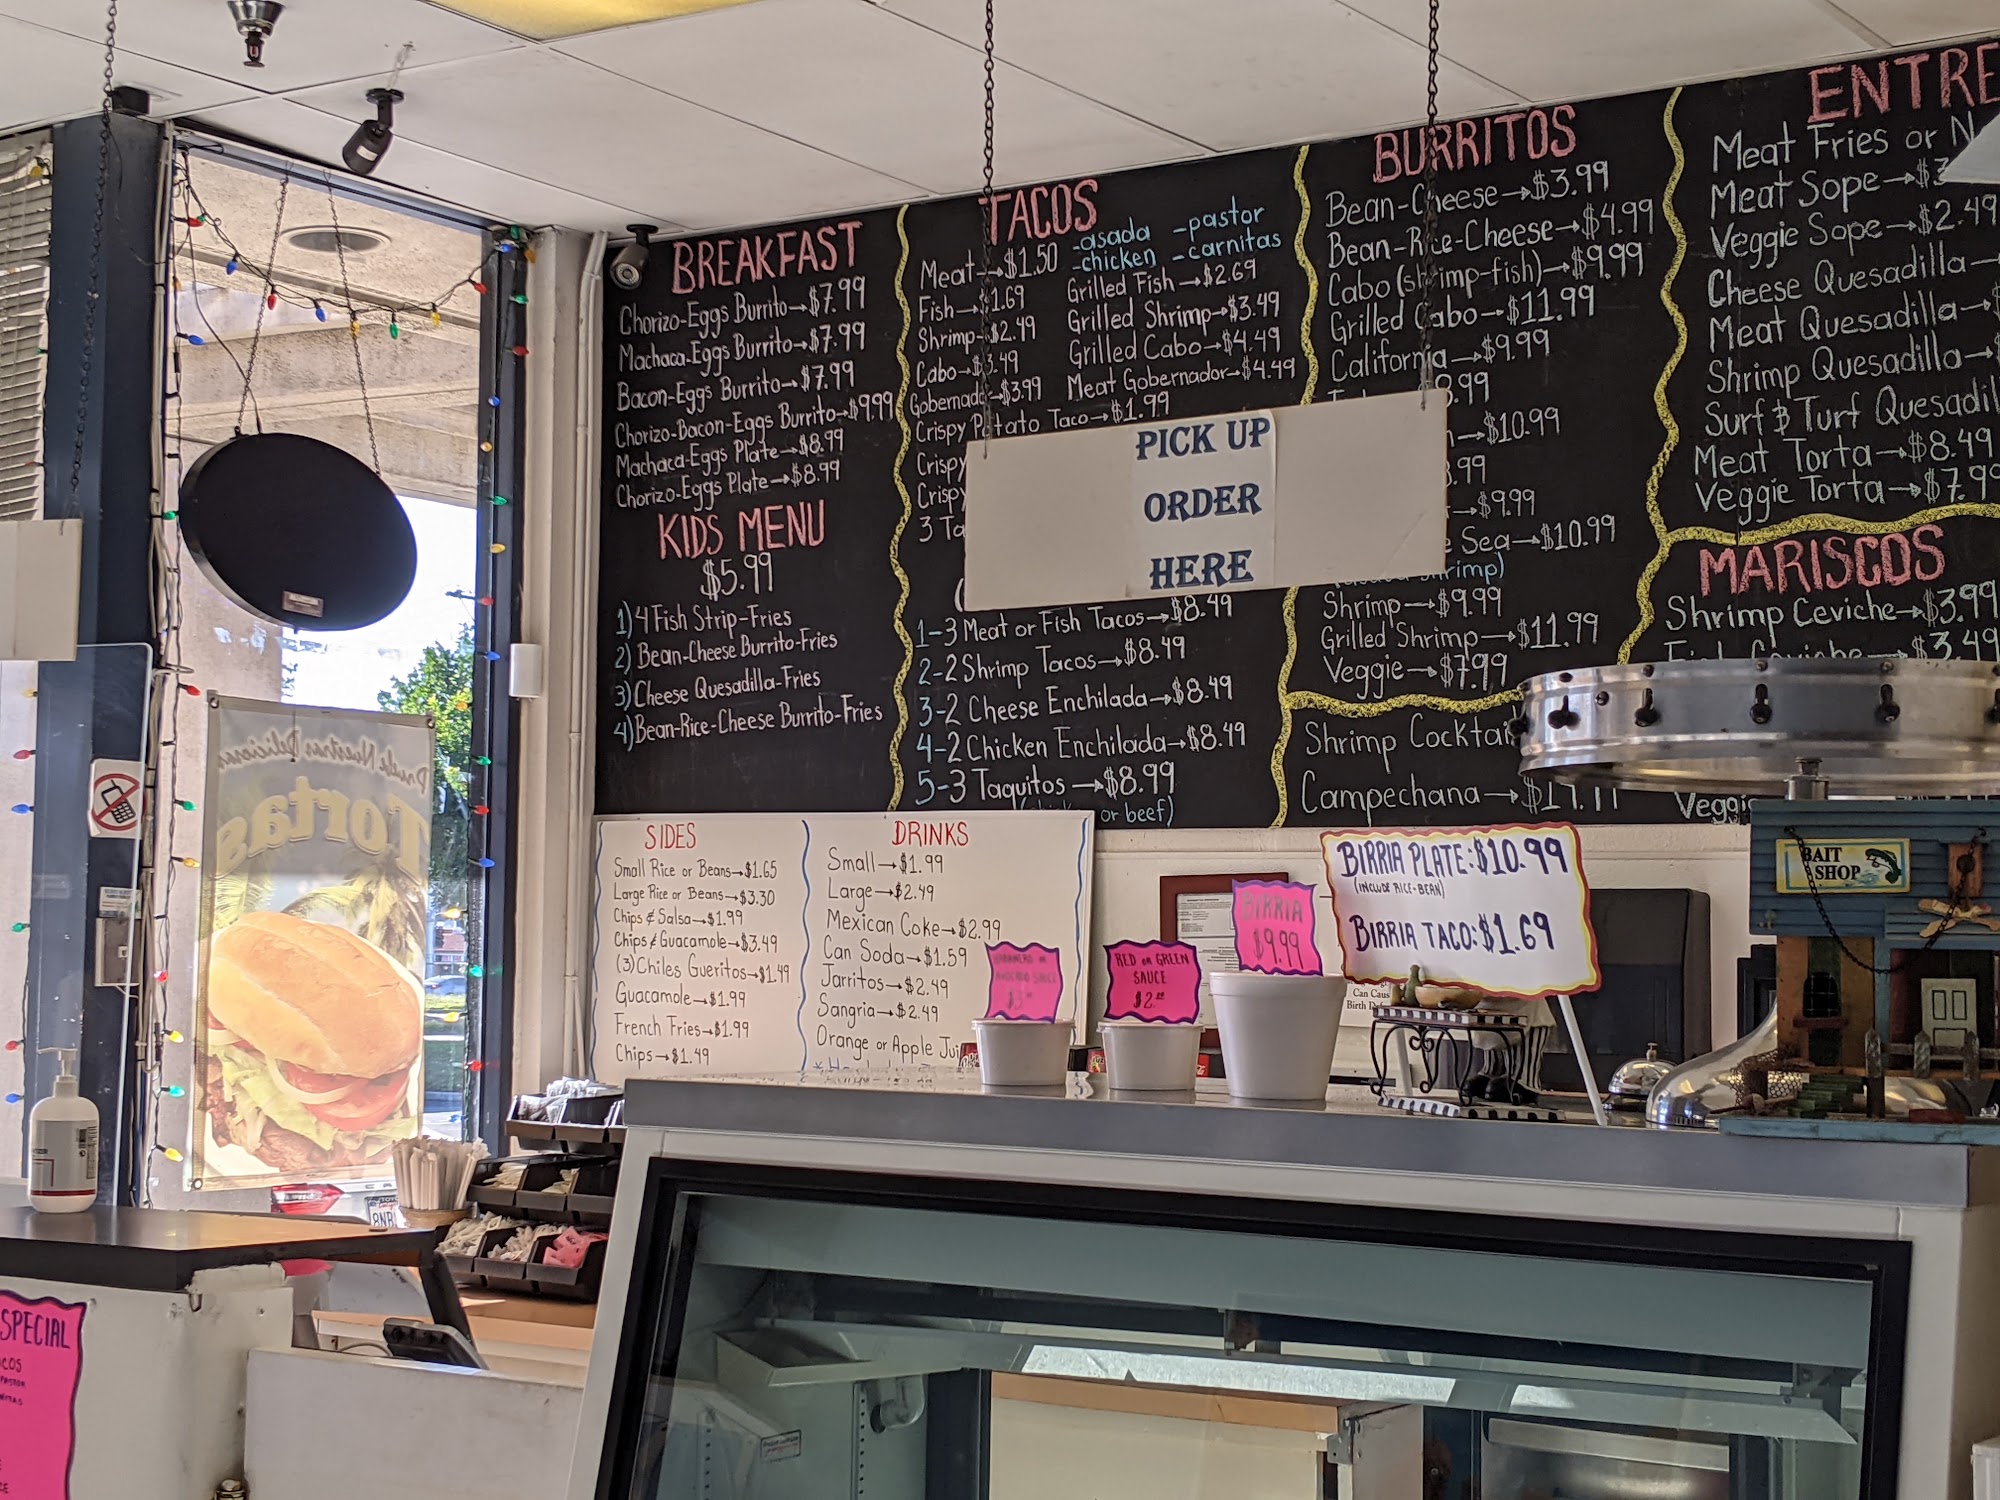 BREAKFAST
Chorizo-Eggs Burrito→$7.99
Machaca-Eggs Burrito→$7.99
Bacon-Eggs Burrito→$7.99
Chorizo-Bacon-Eggs Burrito→$9.99
Machaca-Eggs Plate→$8.99
Chorizo-Eggs Plate→$8.99
KIDS MENU
$5.99
1) 4 Fish Strip-Fries
2) Bean-Cheese Burrito-Fries
3) Cheese Quesadilla-Fries
4) Bean-Rice-Cheese Burrito-Fries
TACOS
Meat→$1.50
-asada -pastor
-chicken -carnitas
Fish→$1.69
Shrimp→$2.49
Cabo→$3.49
Gobernado→$3.99
Grilled Fish→$2.69
Grilled Shrimp→$3.49
Grilled Cabo→$4.49
Meat Gobernador→$4.49
Crispy Potato Taco→$1.99
Crispy
Crispy
3 Ta
1-3 Meat or Fish Tacos→$8.49
2-2 Shrimp Tacos→$8.49
3-2 Cheese Enchilada→$8.49
4-2 Chicken Enchilada→$8.49
5-3 Taquitos→$8.99
or beef)
BURRITOS
Bean-Cheese→$3.99
Bean-Rice-Cheese→$4.99
Cabo (shrimp-fish)→$9.99
Grilled Cabo→$11.99
California→$9.99
8.99
→$10.99
.99
→$9.99
Sea→$10.99
Shrimp→$9.99
Grilled Shrimp→$11.99
Veggie→$7.99
Shrimp Cocktail
Campechana→
ENTRE
Meat Fries or N
Meat Sope→$3
Veggie Sope→$2.49
Cheese Quesadilla→
Meat Quesadilla→
Shrimp Quesadilla→
Surf & Turf Quesadil
Meat Torta→$8.49
Veggie Torta→$7.99
MARISCOS
Shrimp Ceviche→$3.99
Fish Ceviche→$3.49
Veggie
PICK UP
ORDER
HERE
SIDES
Small Rice or Beans→$1.65
Large Rice or Beans→$3.30
Chips & Salsa→$1.99
Chips & Guacamole→$3.49
(3) Chiles Gueritos→$1.49
Guacamole→$1.99
French Fries→$1.99
Chips→$1.49
DRINKS
Small→$1.99
Large→$2.49
Mexican Coke→$2.99
Can Soda→$1.59
Jarritos→$2.49
Sangria→$2.49
Orange or Apple Jui
HABANERO or
AVOCADO SAUCE
RED or GREEN
SAUCE
$2.00
BIRRIA
$9.99
BIRRIA PLATE:$10.99
(INCLUDE RICE-BEAN)
BIRRIA TACO:$1.69
Can Caus
Birth Def
BAIT
SHOP
Pruebe Nuestras Deliciosas
Tortas
SPECIAL
ACOS
PASTOR